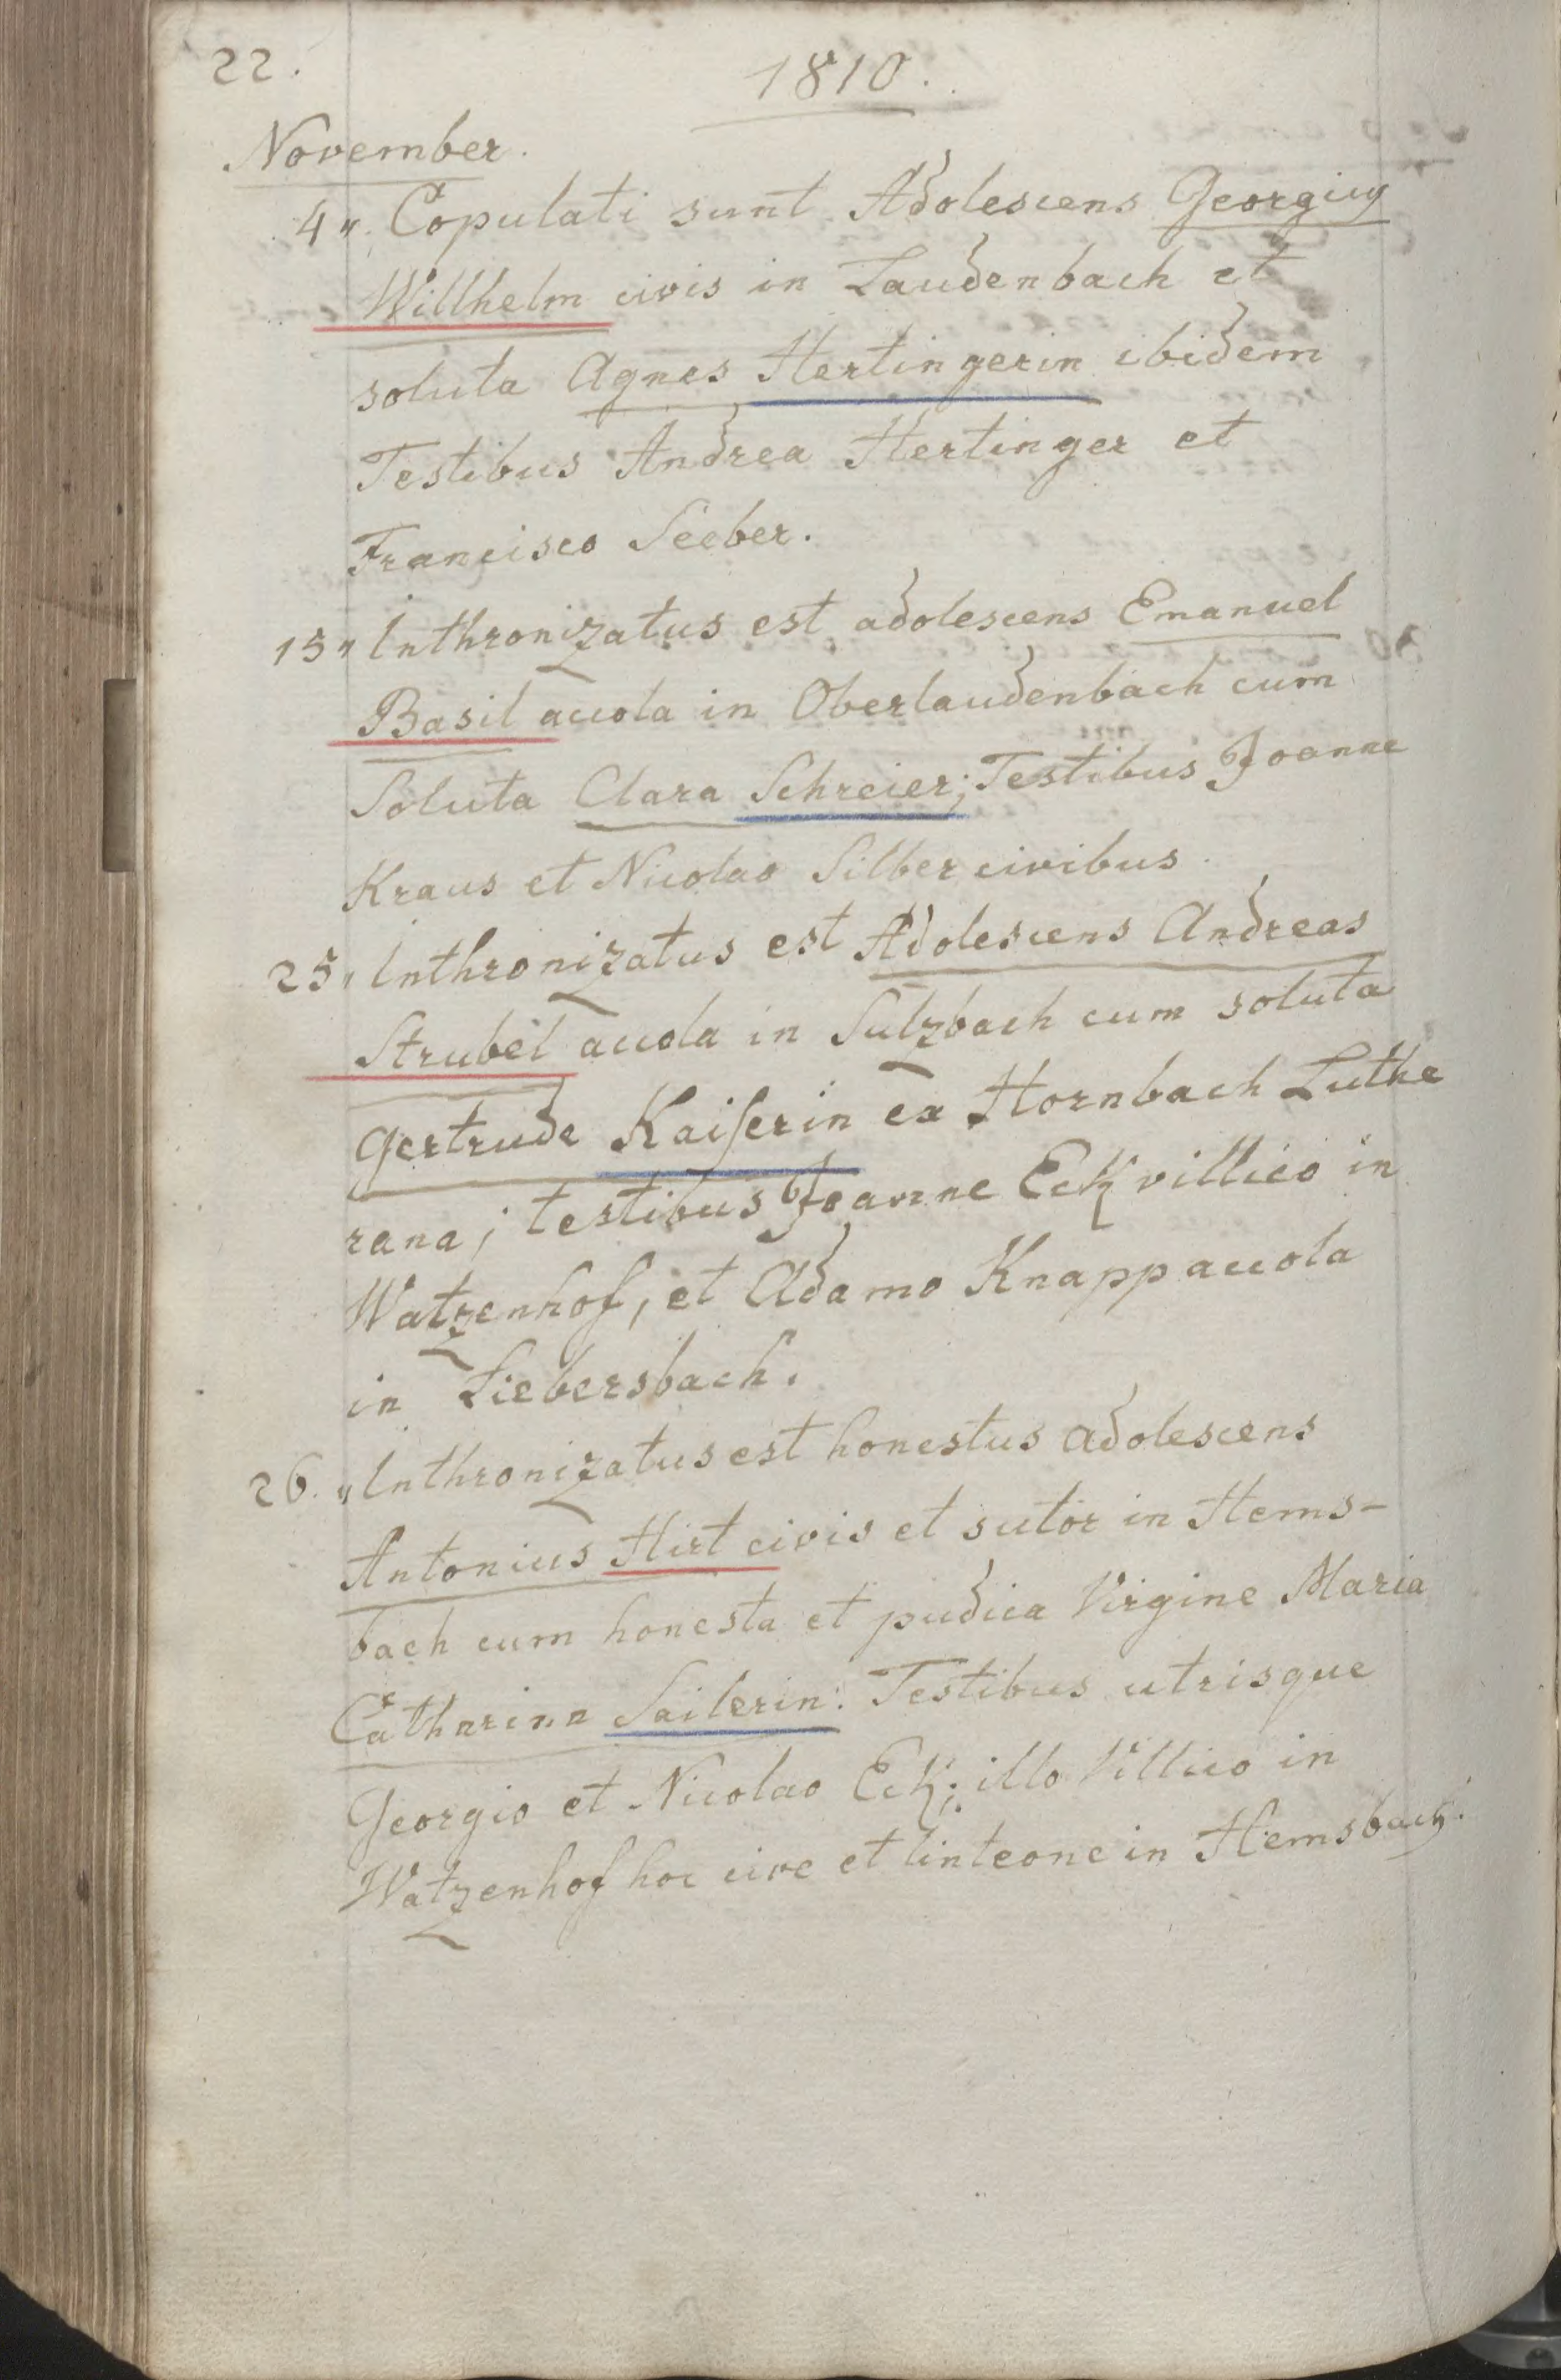 22.
1810.
November.
4". Copulati sunt Adolescens Georgius
Willhelm civis in Laudenbach et
soluta Agnes Hertingerin ibidem
Testibus Andrea Hertinger et
Francisco Seeber.
15" Inthronizatus est adolescens Emanuel
Basil accola in Oberlaudenbach cum
Soluta Clara Schreier; Testibus Joanne
Kraus et Nicolao Silber civibus.
25" Inthronizatus est Adolescens Andreas
Strubel accola in Sulzbach cum soluta
Gertrude Kaiserin ex Hornbach Luthe
rana; testibus Joanne Eck villico in
Watzenhof, et Adamo Knapp accola
in Liebersbach.
26. " Inthronizatus est honestus adolescens
Antonius Hirt civis et sutor in Hems-
bach cum honesta et pudica Virgine Maria
Catharina Sailerin: Testibus utrisque
Georgio et Nicolao Eck; illo Villico in
Watzenhof hoc cive et linteone in Hemsbach.